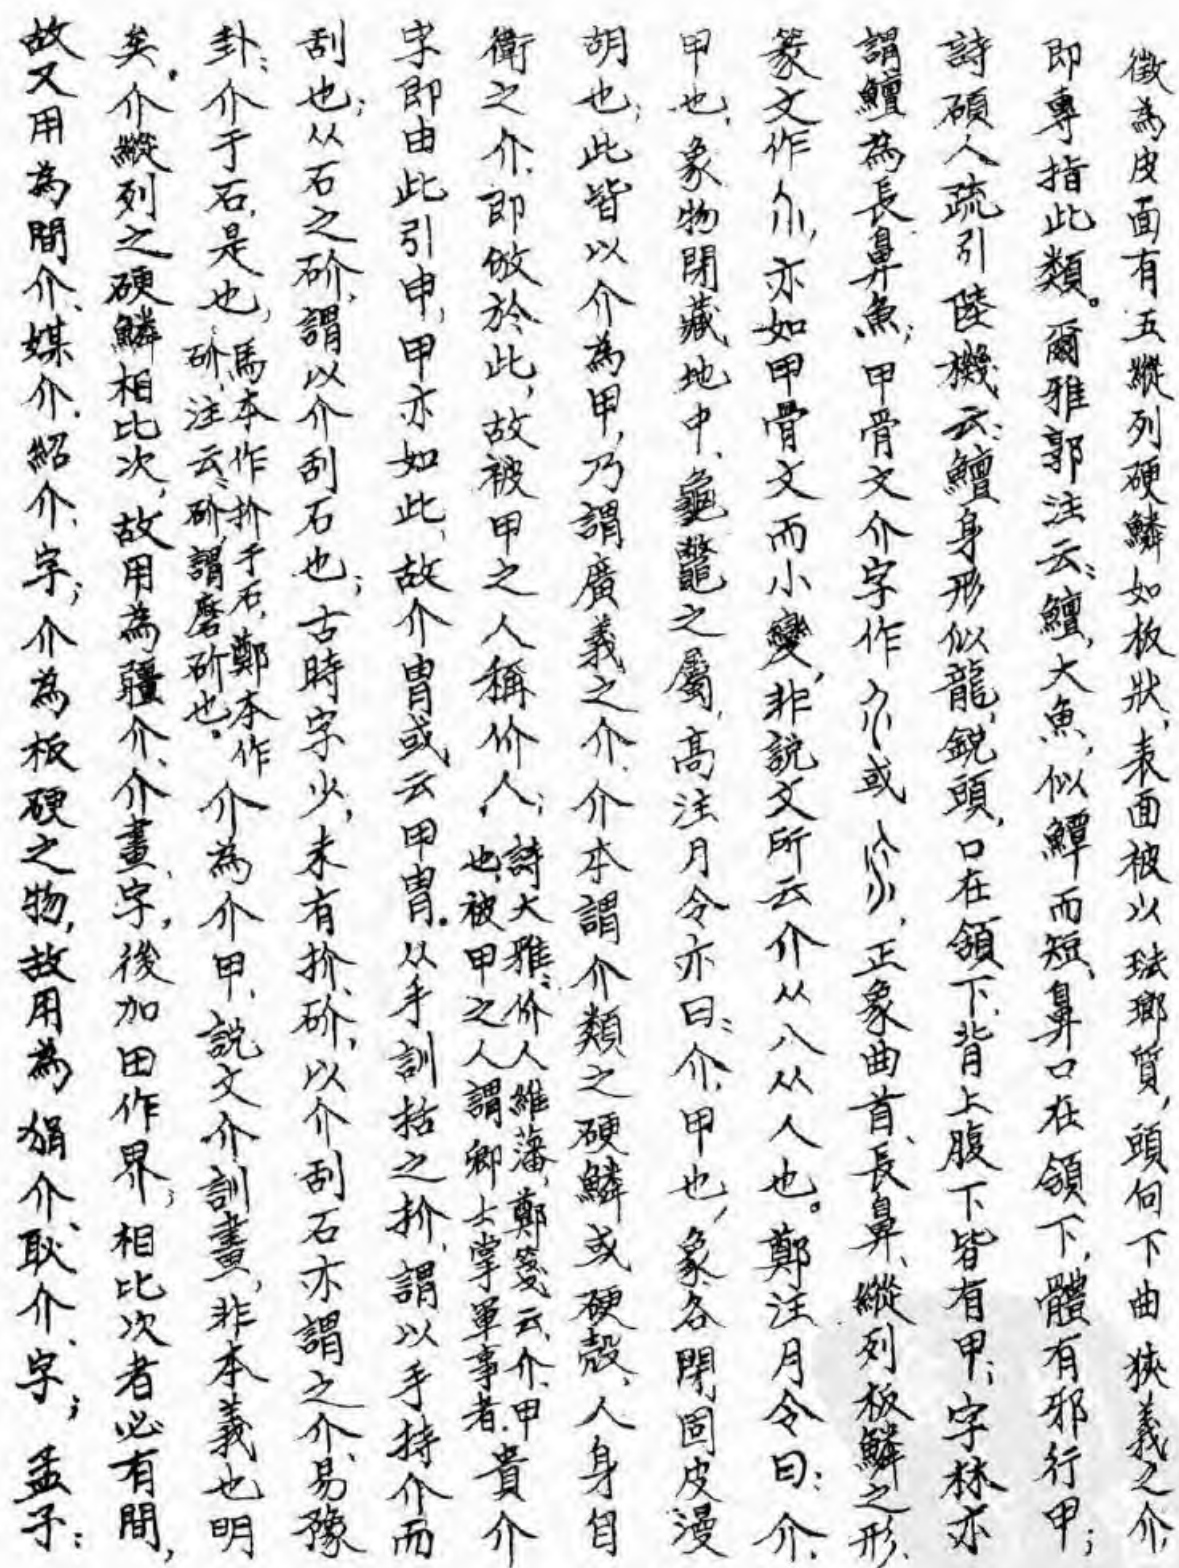 徵為皮面有五縱列硬鱗如板狀，表面被以琺瑯質，頭向下曲狹義之介，
即專指此類。爾雅郭注云：鱣，大魚，似鱏而短鼻，口在頷下，體有邪行甲；
詩碩人疏引陸機云：鱣身形似龍，銳頭，口在頷下，背上腹下皆有甲；字林亦
謂鱣為長鼻魚；甲骨文介字作或，正象曲首、長鼻、縱列板鱗之形，
篆文作，亦如甲骨文而小變，非說文所云介从八从人也。鄭注月令曰：介，
甲也，象物閉藏地中，龜鼈之屬，高注月令亦曰：介，甲也，象冬閉固皮漫
胡也；此皆以介為甲，乃謂廣義之介，介本謂介類之硬鱗或硬殼，人身自
衛之介，即倣於此，故被甲之人稱价人；詩大雅：价人維藩，鄭箋云，介，甲也，被甲之人謂卿士掌軍事者，貴介
字即由此引申，甲亦如此，故介冑或云甲冑。从手訓括之扴，謂以手持介而
刮也；从石之砎，謂以介刮石也；古時字少，未有扴、砎，以介刮石亦謂之介，易豫
卦：介于石，是也，馬本作扴于石，鄭本作砎，注云：砎，謂磨砎也。介為介甲，說文介訓畫，非本義也明
矣。介縱列之硬鱗相比次，故用為疆介、介畫字，後加田作界；相比次者必有間，
故又用為間介、媒介、紹介字；介為板硬之物，故用為狷介、耿介字；孟子：